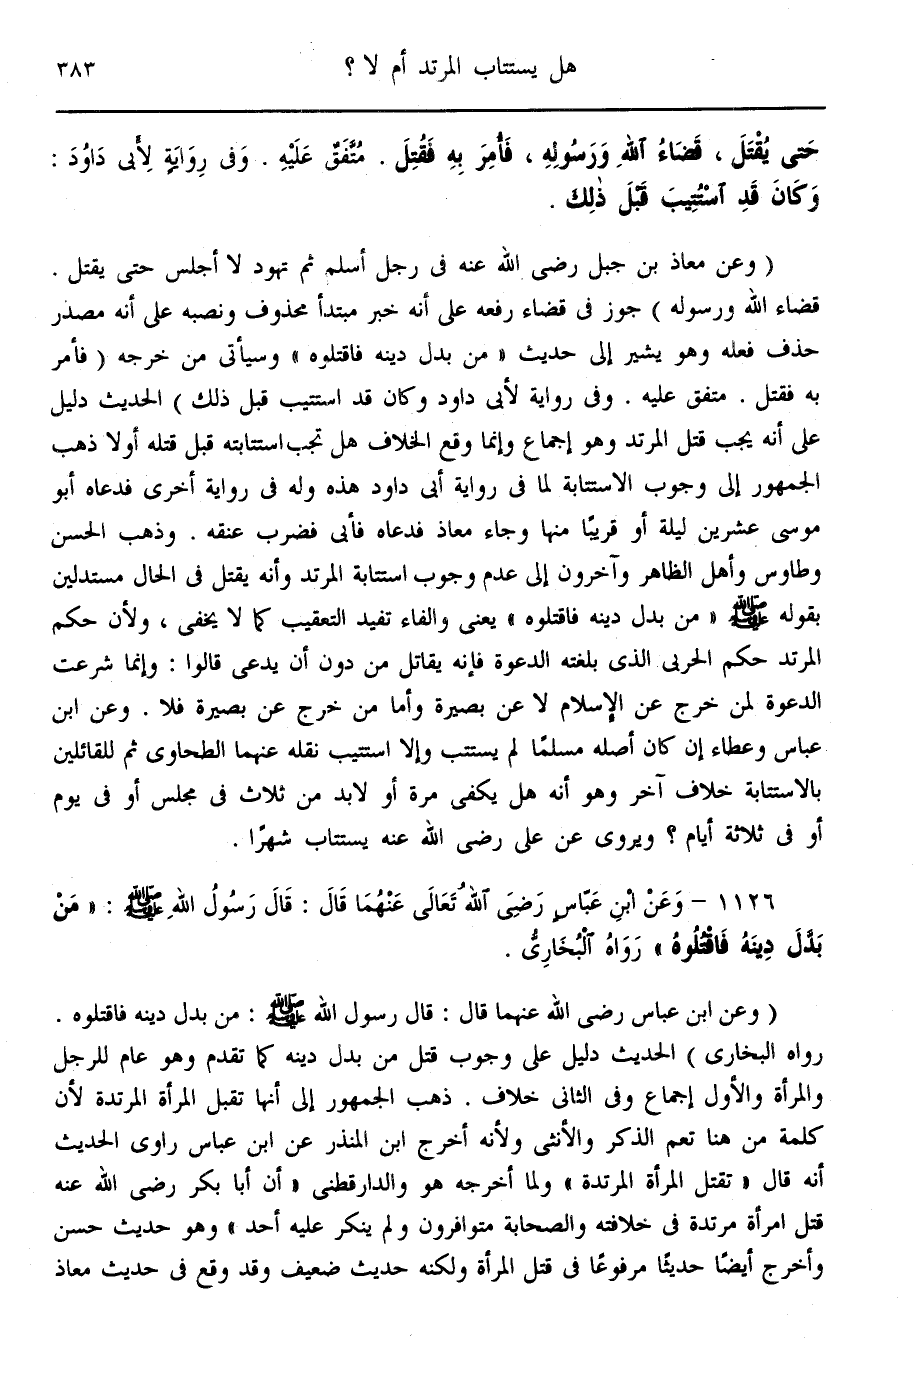 هل يستتاب المرتد أم لا ؟ ٣٨٣
حَتى يُقْتَلَ ، قَضَاءُ ٱللهِ وَرَسُولِهِ ، فَأُمِرَ بِهِ فَقُتِلَ . مُتَّفَقٌ عَلَيْهِ . وَفى رِوَايَةٍ لِأَبى دَاوُدَ :
وَكَانَ قَدِ ٱسْتُتِيبَ قَبْلَ ذٰلِكَ .
( وعن معاذ بن جبل رضى الله عنه فى رجل أسلم ثم تهود لا أجلس حتى يقتل .
قضاء الله ورسوله ) جوز فى قضاء رفعه على أنه خبر مبتدأ محذوف ونصبه على أنه مصدر
حذف فعله وهو يشير إلى حديث « من بدل دينه فاقتلوه » وسيأتى من خرجه ( فأمر
به فقتل . متفق عليه . وفى رواية لأبى داود وكان قد استتيب قبل ذلك ) الحديث دليل
على أنه يجب قتل المرتد وهو إجماع وإنما وقع الخلاف هل تجب استتابته قبل قتله أولا ذهب
الجمهور إلى وجوب الاستتابة لما فى رواية أبى داود هذه وله فى رواية أخرى فدعاه أبو
موسى عشرين ليلة أو قريبًا منها وجاء معاذ فدعاه فأبى فضرب عنقه . وذهب الحسن
وطاوس وأهل الظاهر وآخرون إلى عدم وجوب استتابة المرتد وأنه يقتل فى الحال مستدلين
بقوله ﷺ « من بدل دينه فاقتلوه » يعنى والفاء تفيد التعقيب كما لا يخفى ، ولأن حكم
المرتد حكم الحربى الذى بلغته الدعوة فإنه يقاتل من دون أن يدعى قالوا : وإنما شرعت
الدعوة لمن خرج عن الإسلام لا عن بصيرة وأما من خرج عن بصيرة فلا . وعن ابن
عباس وعطاء إن كان أصله مسلمًا لم يستتب وإلا استتيب نقله عنهما الطحاوى ثم للقائلين
بالاستتابة خلاف آخر وهو أنه هل يكفى مرة أو لابد من ثلاث فى مجلس أو فى يوم
أو فى ثلاثة أيام ؟ ويروى عن على رضى الله عنه يستتاب شهرًا .
١١٢٦ – وَعَنْ ابْنِ عَبَّاسٍ رَضِيَ ٱللهُ تَعَالَى عَنْهُمَا قَالَ : قَالَ رَسُولُ اللهِ ﷺ : « مَنْ
بَدَّلَ دِينَهُ فَاقْتُلُوهُ » رَوَاهُ ٱلْبُخَارِىُّ .
( وعن ابن عباس رضى الله عنهما قال : قال رسول الله ﷺ : من بدل دينه فاقتلوه .
رواه البخارى ) الحديث دليل على وجوب قتل من بدل دينه كما تقدم وهو عام للرجل
والمرأة والأول إجماع وفى الثانى خلاف . ذهب الجمهور إلى أنها تقبل المرأة المرتدة لأن
كلمة من هنا تعم الذكر والأنثى ولأنه أخرج ابن المنذر عن ابن عباس راوى الحديث
أنه قال « تقتل المرأة المرتدة » ولما أخرجه هو والدارقطنى « أن أبا بكر رضى الله عنه
قتل امرأة مرتدة فى خلافته والصحابة متوافرون ولم ينكر عليه أحد » وهو حديث حسن
وأخرج أيضًا حديثًا مرفوعًا فى قتل المرأة ولكنه حديث ضعيف وقد وقع فى حديث معاذ